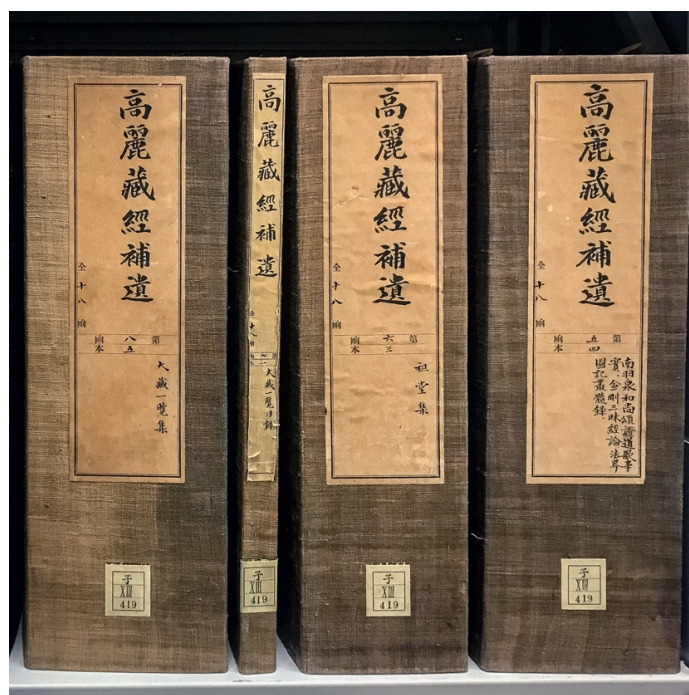 高麗藏經補遺
全十八函
第八函
五本
大藏一覽集
子
XIII
419
高麗藏經補遺
全十八函
大藏一覽目錄
子
XIII
419
高麗藏經補遺
全十八函
第六函
三本
祖堂集
子
XIII
419
高麗藏經補遺
全十八函
第五函
四本
南明泉和尚頌證道歌事
實、金剛三昧經論、法界
圖記叢髓錄、
子
XIII
419